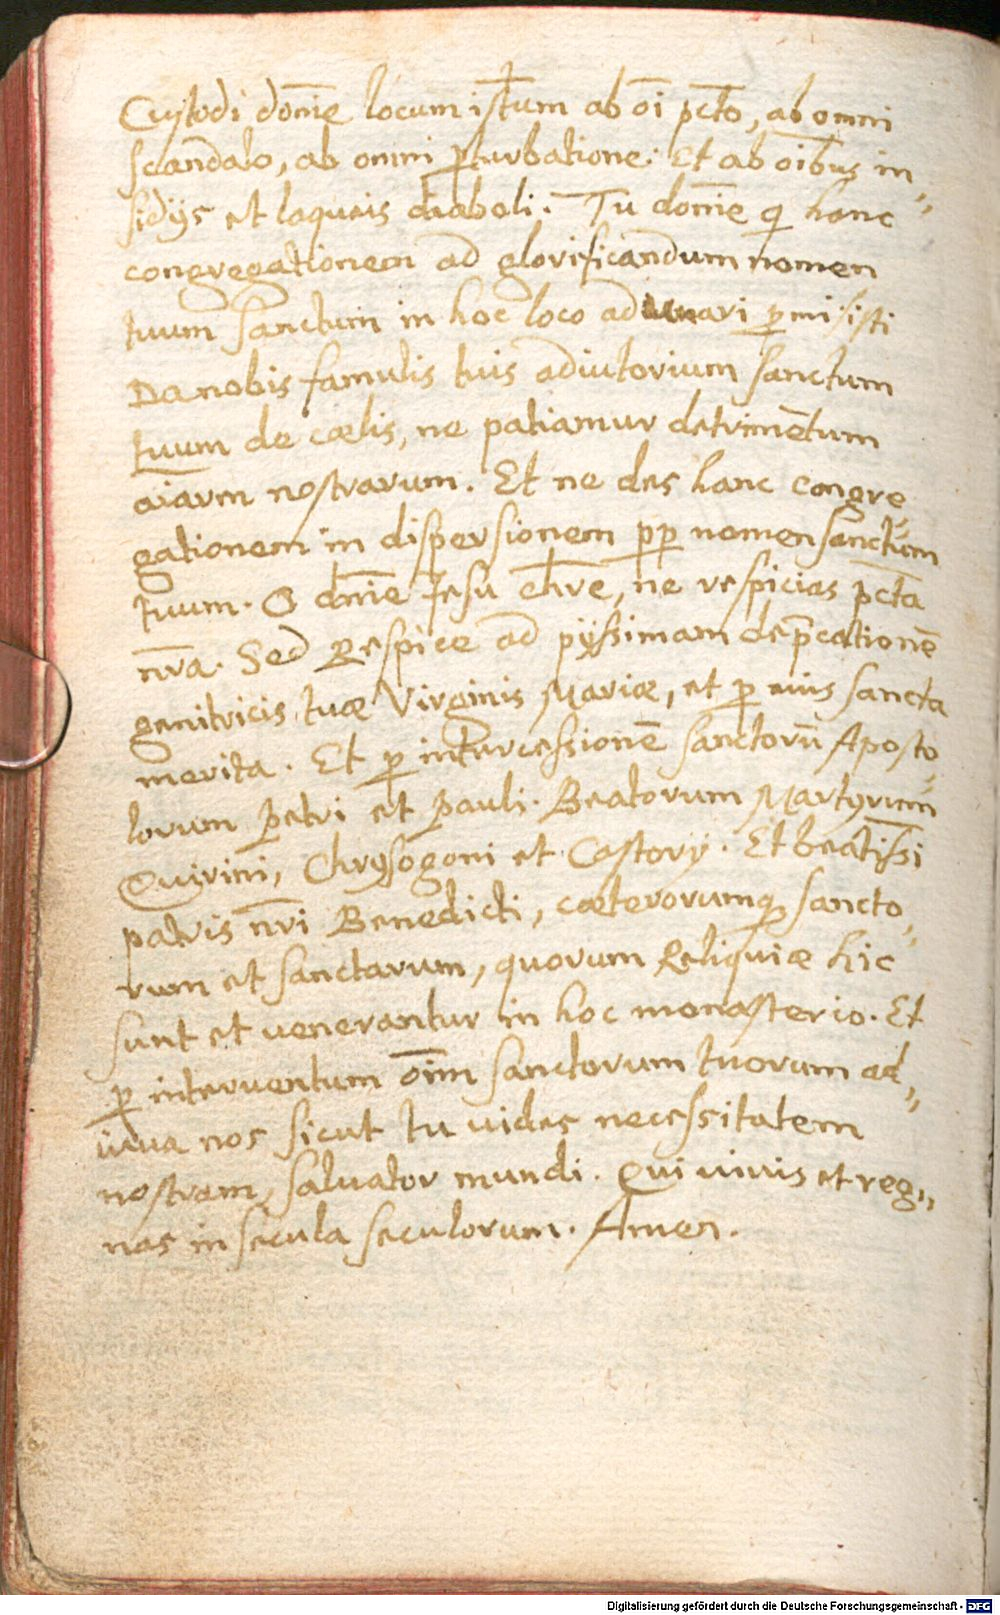 Custodi domīe locum istum ab oī pcto, ab omni
scandalo, ab omni ꝑturbatione: Et ab oībus in„
sidijs et laqueis diaboli. Tu domīe qi hanc
congregationem ad glorificandum nomen
tuum sanctum in hoc loco adunari ꝑmisisti
Da nobis famulis tuis adiutorium sanctum
tuum de cœlis, ne patiamur detrimētum
aīarm nostrarum. Et ne des hanc congre„
gationem in dispersionem ꝓp nomen sanctum
tuum. O domīe Jesu chr̄e, ne respicias pcta
nr̄a. Sed Respice ad pijssimam dep̄cationē
genitricis tuæ Virginis Mariæ, et ꝑ eius sancta
merita. Et ꝑ intercessionē sanctorū Aposto„
lorum Petri et Pauli. Beatorum Martyrum
Quirini, Chrysogoni et Castorij. Et beatissi
patris nr̄i Benedicti, cæterorumqꝫ sancto„
rum et sanctarum, quorum Reliquiæ hic
sunt et uenerantur in hoc monasterio. Et
ꝑ interuentum oīm sanctorum tuorum ad„
iuua nos sicut tu uides necessitatem
nostram, saluator mundi. Qui uiuis et reg„
nas in secula seculorum. Amen.
Digitalisierung gefördert durch die Deutsche Forschungsgemeinschaft - DFG